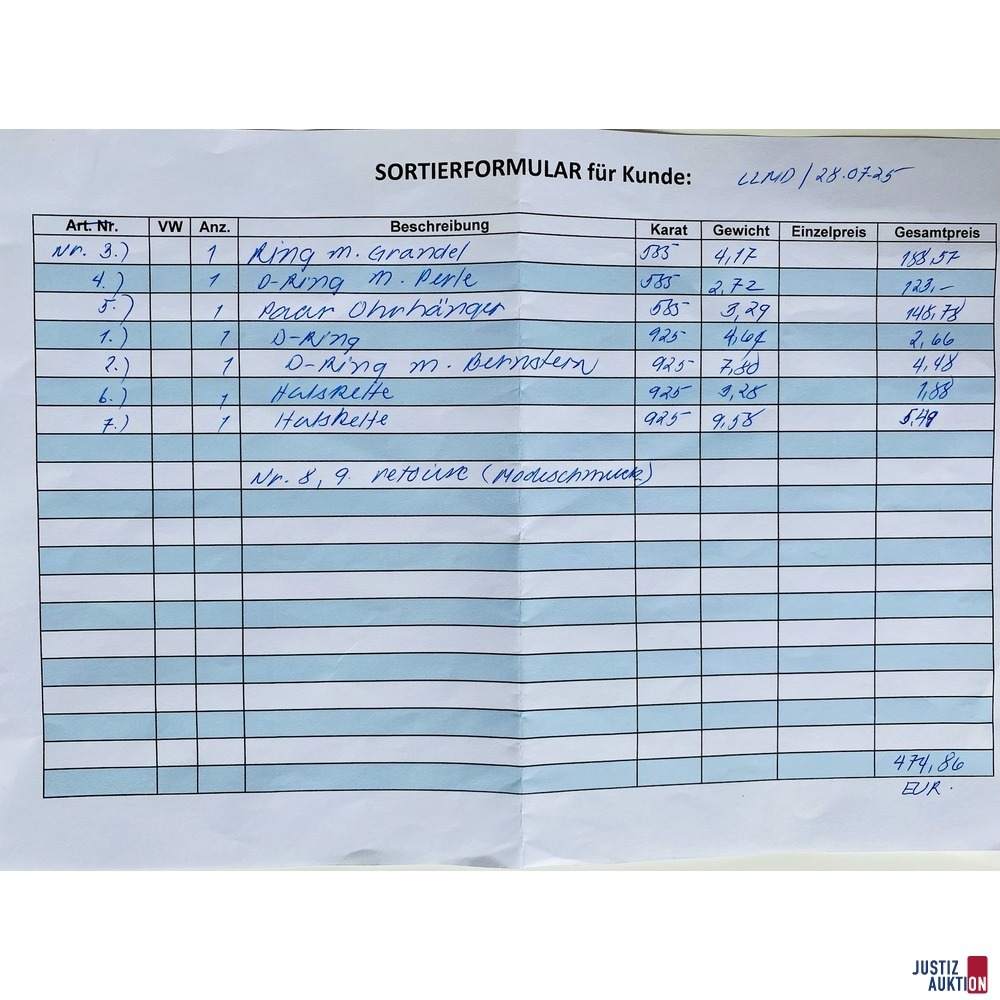 SORTIERFORMULAR für Kunde: / 28.07.25
Art. Nr. VW Anz. Beschreibung Karat Gewicht Einzelpreis Gesamtpreis
Nr. 3.) 1 Ring m. Grandel 585 4,17 188,57
4.) 1 D-Ring m. Perle 585 2,72 123,-
5.) 1 Paar Ohrhänger 585 3,29 148,78
1.) 1 D-Ring 925 4,64 2,66
2.) 1 D-Ring m. Bernstein 925 7,80 4,48
6.) 1 Halskette 925 3,28 1,88
7.) 1 Halskette 925 9,58 5,49
Nr. 8, 9 retoure (Modeschmuck)
474,86
EUR.
JUSTIZ
AUKTION